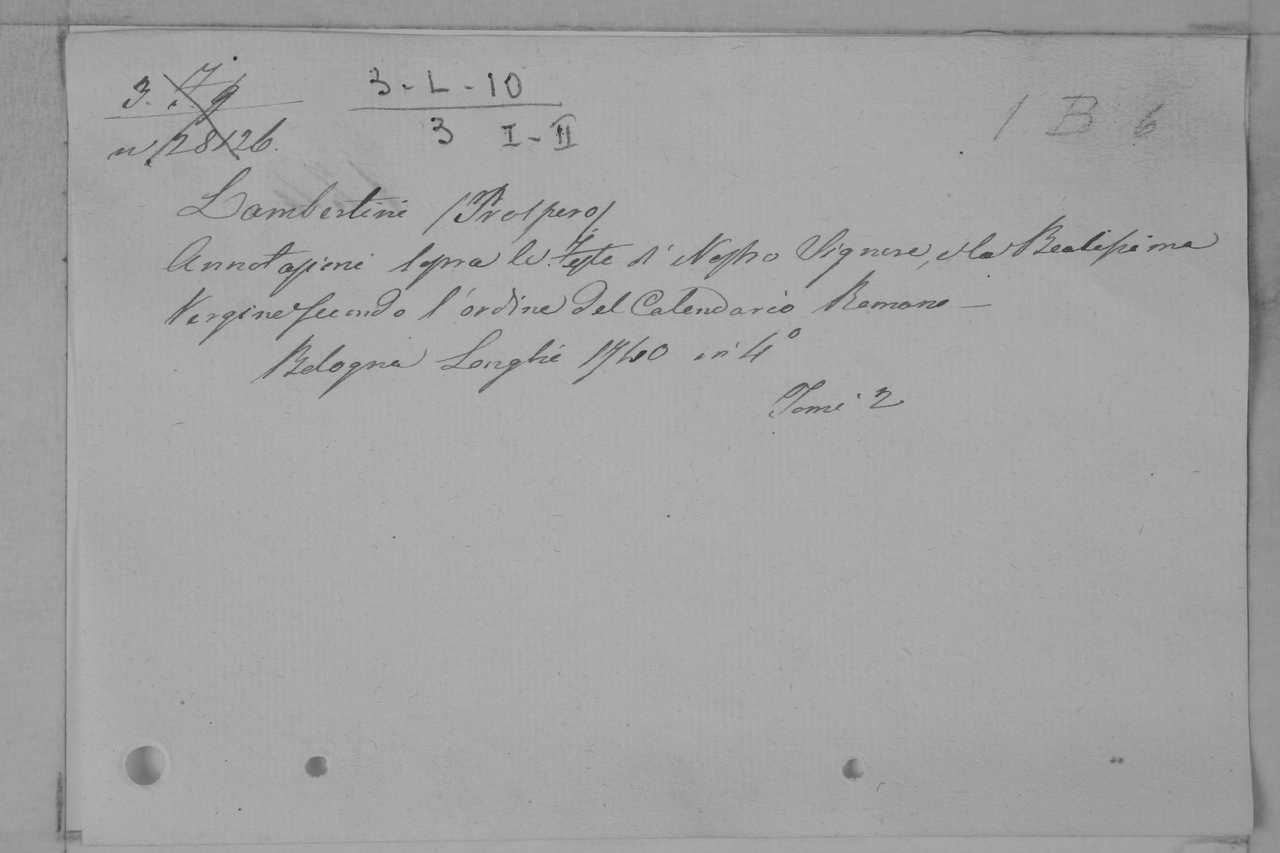 3. 7. 9
n. 28 26.
3-L-10
3 I-II
1 B 6
Lambertini (Prospero)
Annotazioni sopra le Feste di Nostro Signore, e la Beatissima
Vergine secondo l'ordine del Calendario Romano —
Bologna Longhi 1740 in 4°
Tomi 2